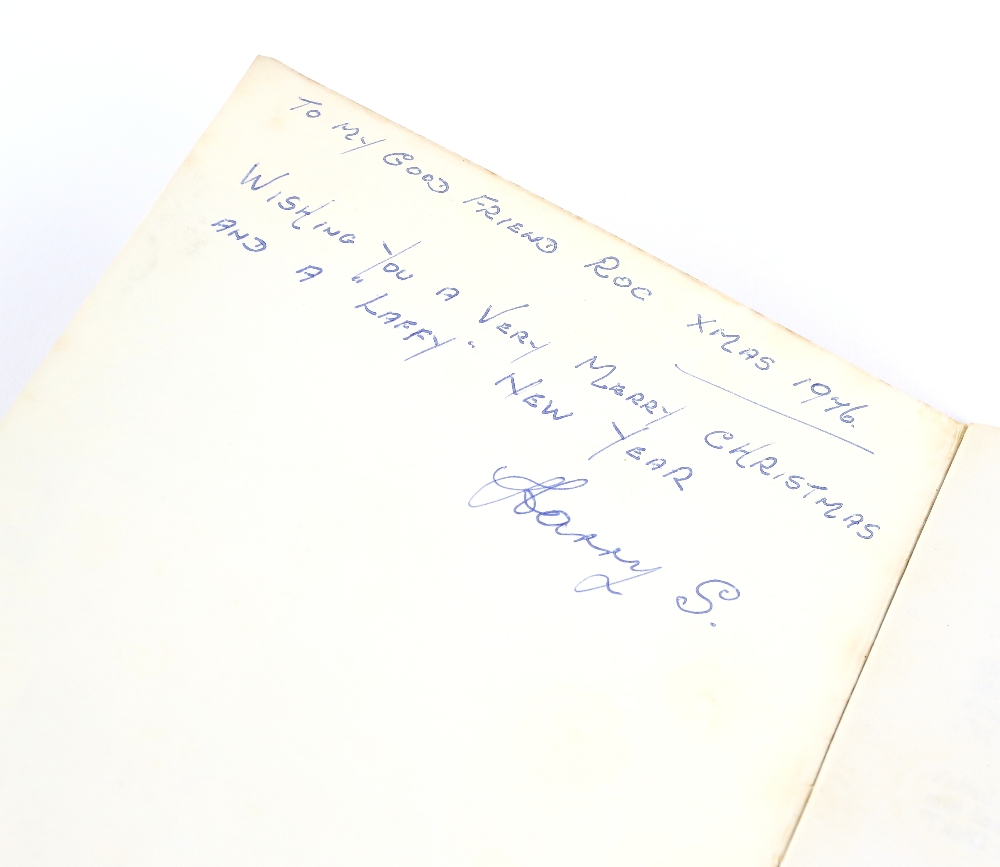 TO MY GOOD FRIEND ROC XMAS 1946.
WISHING YOU A VERY MERRY CHRISTMAS
AND A "LAFFY" NEW YEAR
Harry S.